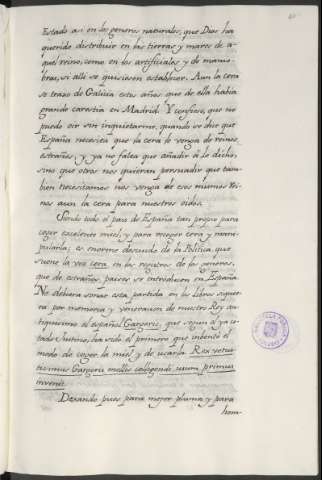 Estado asi en los generos naturales, que Dios ha
querido distribuir en las tierras y mares de a-
quel reino, como en los artificiales y de manio-
bras, si alli se quisiesen establecer. Aun la cera
se traxo de Galicia estos años que de ella habia
grande carestia en Madrid. Y confieso, que no
puedo oir sin inquietarme, quando se dice que
España necesita que la cera le venga de reinos
estraños; y ya no falta que añadir à lo dicho,
sino que otros nos quieran persuadir que tam-
bien necesitamos nos venga de esos mismos Rei-
nos aun la cera para nuestros oidos.
Siendo todo el pais de España tan propio para
coger excelente miel, y para recoger cera y mani-
pularla; es enorme descuido de la Politica, que
suene la voz cera, en los registros de los generos,
que de estraños paises se introducen en España.
No debiera sonar esta partida en los libros siquie-
ra por memoria y veneracion de nuestro Rey an-
tiquisimo el español Gargoris, que segun el ya ci-
tado Justino, ha sido el primero que inventó el
modo de coger la miel y de usarla. Rex vetus-
tissimus Gargoris mellis colligendi usum primus
invenit.
Dexando pues para mejor pluma y para
hom-